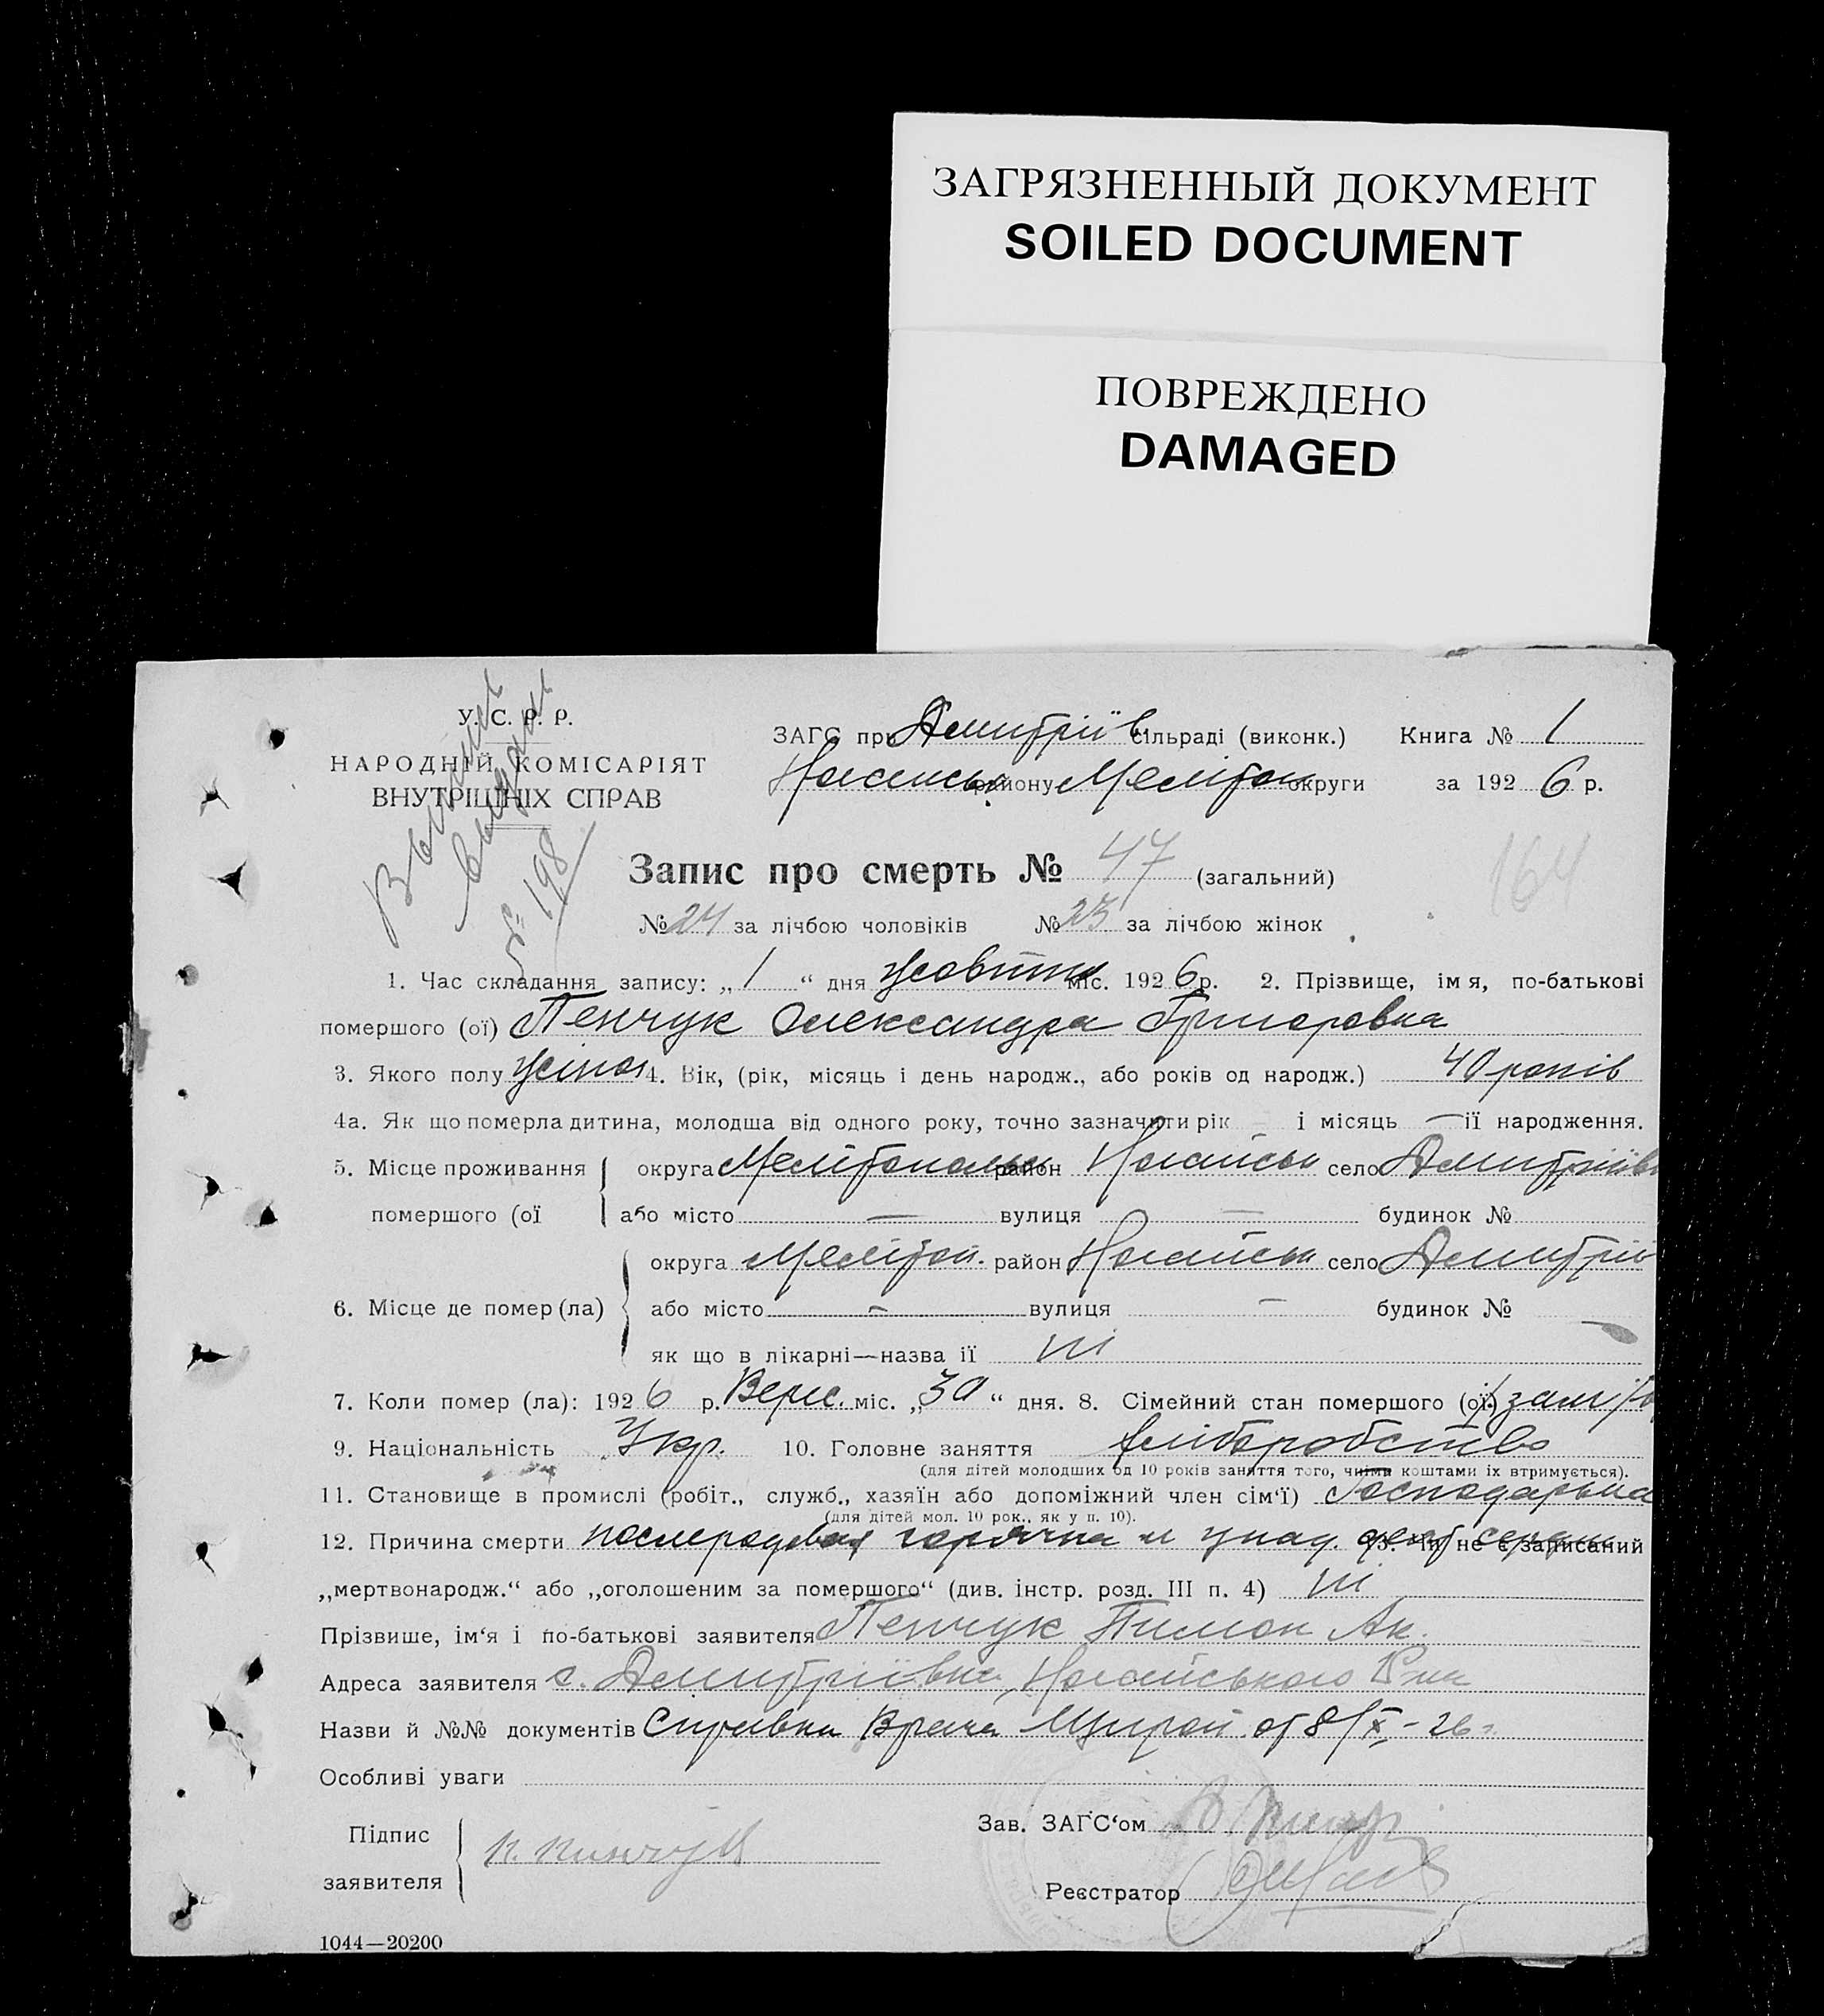 ЗАГРЯЗНЕННЫЙ ДОКУМЕНТ
SOILED DOCUMENT
ПОВРЕЖДЕНО
DAMAGED
У. С. Р. Р.
НАРОДНІЙ КОМІСАРІЯТ
ВНУТРІШНІХ СПРАВ
№ 198
ЗАГС при Дмитріїв. сільраді (виконк.) Книга № 1
Ногайськ. району Мелітоп округи за 1926 р.
Запис про смерть № 47 (загальний)
164
№ 24 за лічбою чоловіків № 23 за лічбою жінок
1. Час складання запису: „ 1 “ дня жовтня міс. 1926 р. 2. Прізвище, імя, по-батькові
помершого (ої) Пенчук Олександра Григоровна
3. Якого полу жіноч 4. Вік, (рік, місяць і день народж., або років од народж.) 40 років
4а. Як що померла дитина, молодша від одного року, точно зазначити рік – і місяць — її народження.
5. Місце проживання округа Мелітопольськ район Ногайськ село Дмитріївк
помершого (ої або місто — вулиця — будинок №
округа Мелітоп. район Ногайськ село Дмитрів
6. Місце де помер (ла) або місто – вулиця – будинок №
як що в лікарні—назва її ні
7. Коли помер (ла): 1926 р. Верес. міс. „ 30 “ дня. 8. Сімейний стан помершого (ої)
9. Національність Укр. 10. Головне заняття хліборобство
(для дітей молодших од 10 років заняття того, чиїми коштами їх втримується).
11. Становище в промислі (робіт., служб., хазяїн або допоміжний член сім‘ї) Господарька
(для дітей мол. 10 рок., як у п. 10).
12. Причина смерти послеродовая горячка и упад. деят сердца 13. Чи не є записаний
„мертвонародж.“ або „оголошеним за помершого“ (див. інстр. розд. III п. 4) ні
Прізвише, ім‘я і по-батькові заявителя Пенчук Пимон Ак.
Адреса заявителя с. Дмитріївка, Ногайського Р-на
Назви й №№ документів Справка Врача от 8/X - 26 г.
Особливі уваги
Підпис
заявителя
Зав. ЗАГС‘ом
Реєстратор
1044—20200